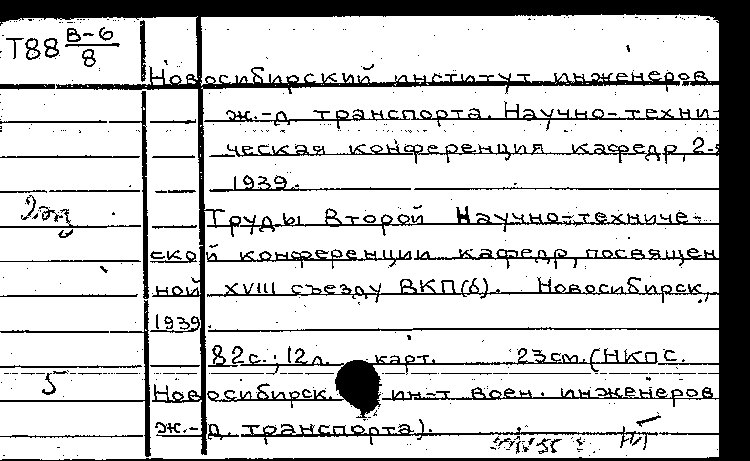 Т88 В-6/8
Новосибирский институт инженеров
ж.-д. транспорта. Научно-техни-
ческая конференция кафедр, 2-я
1939.
Труды Второй Научно-техниче-
ской конференции кафедр, посвящен
ной XVIII съезду ВКП(б). Новосибирск,
1939.
82с.; 12л. карт. 23см. (НКПС.
5
Новосибирск. ин-т воен. инженеров
ж.-д. транспорта).